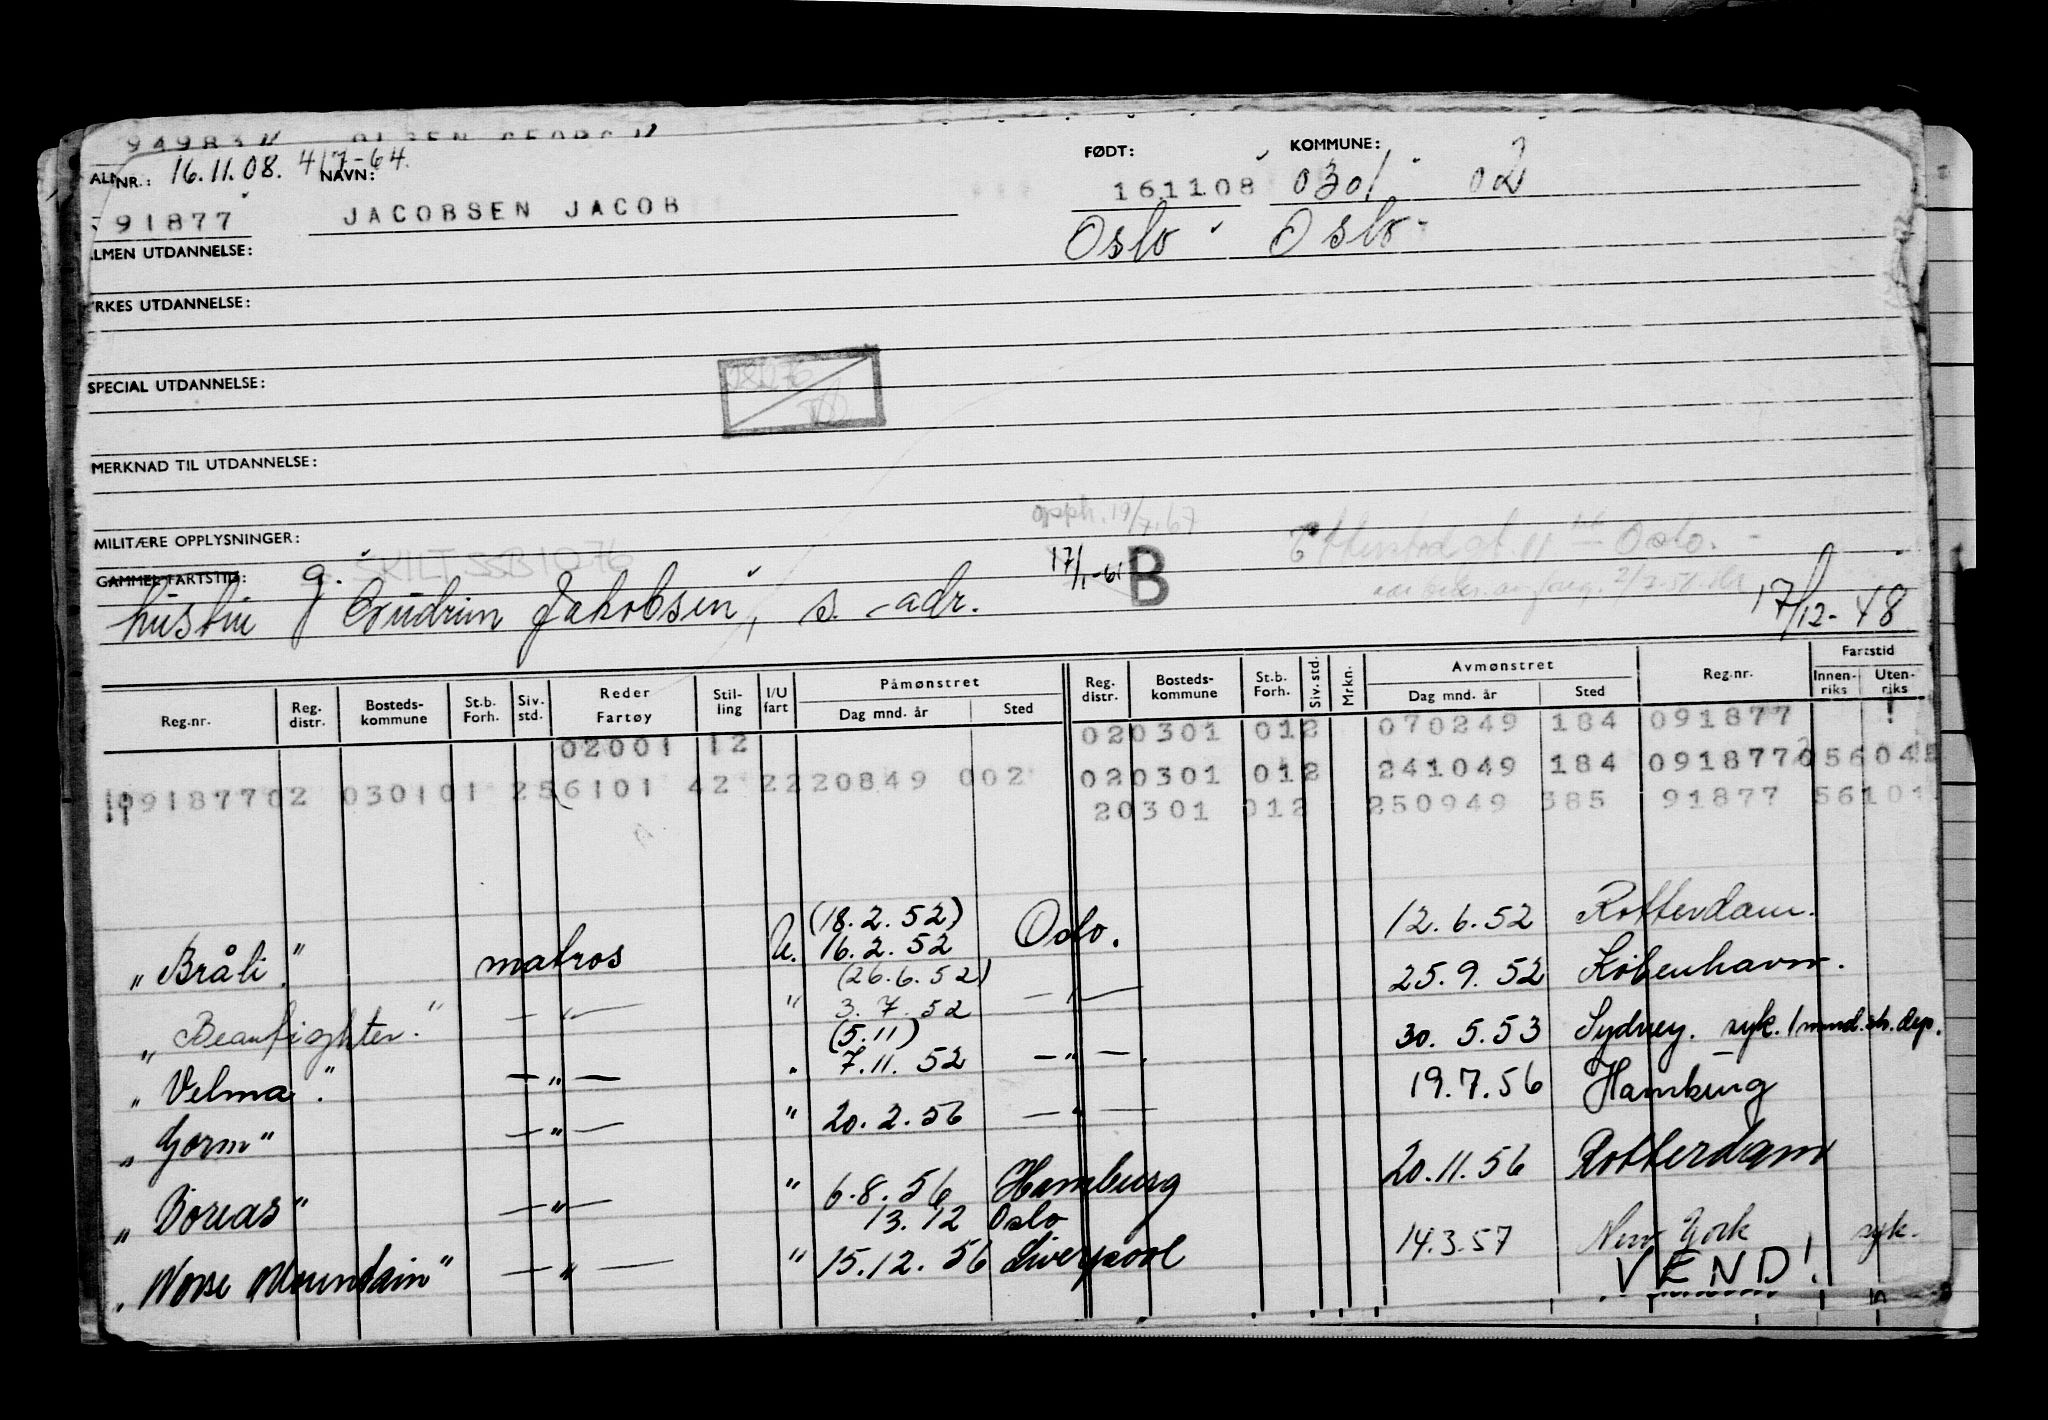 94983 OLSEN GEORG
NR.: 16.11.08. 4/7-64. NAVN: FØDT: KOMMUNE:
91877 JACOBSEN JACOB 161108 0301 02
Oslo Oslo
LMEN UTDANNELSE:
RKES UTDANNELSE:
SPECIAL UTDANNELSE:
MERKNAD TIL UTDANNELSE:
MILITÆRE OPPLYSNINGER: 19/7.67
SKILT SSB 1076 17/1-61 B Oslo.
GAMMEL FARTSTID: g.
hustru Gudrun Jakobsen, s. adr. 17/12-48
Påmønstret Avmønstret Fartstid
Reg.nr. Reg. distr. Bosteds-kommune St.b. Forh. Siv. std. Reder Fartøy Stil-ling I/U fart Dag mnd. år Sted Reg. distr. Bosteds-kommune St.b. Forh. Siv. std. Mrkn. Dag mnd. år Sted Reg.nr. Innen-riks Uten-riks
02001 12 020301 012 070249 184 091877
09187702 030101 256101 42 2220849 002 020301 012 241049 184 091877 05604
20301 012 250949 385 91877 56101
(18.2.52)
„Bråli" matros U. 16.2.52 Oslo. 12.6.52 Rotterdam.
(26.6.52)
„Beaufighter." —"— " 3.7.52 —"— 25.9.52 København.
(5.11)
„Velma". —"— " 7.11.52 —"—. 30.5.53 Sydney. syk. 1 mnd. sh. dep.
„Gorm" —"— " 20.2.56 —"— 19.7.56 Hamburg
„Boreas" —"— " 6.8.56 Hamburg 20.11.56 Rotterdam
13.12 Oslo
„Norse Mountain" —"— " 15.12.56 Liverpool 14.3.57 New York syk.
VEND!